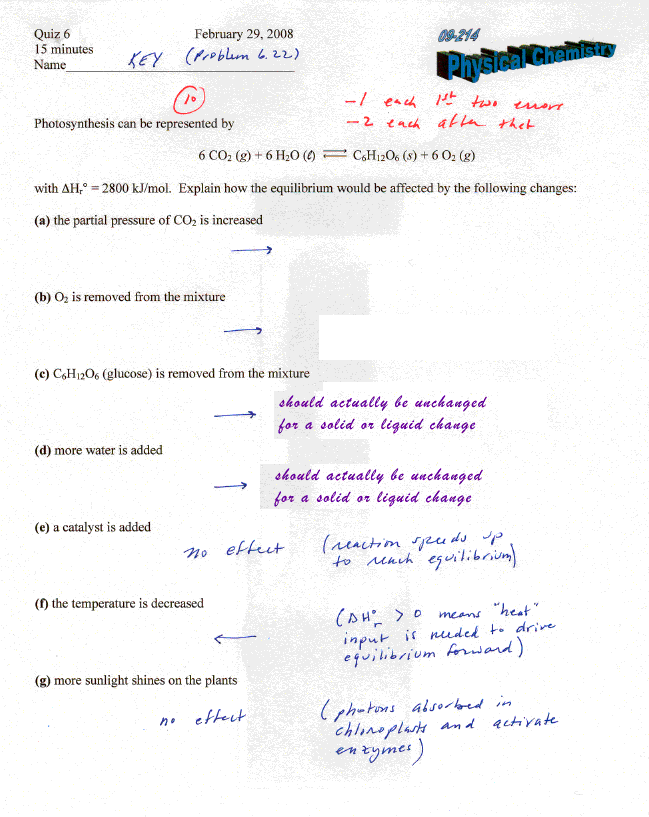 Quiz 6 February 29, 2008 09-214
15 minutes
Physical Chemistry
Name KEY (Problem 6.22)
10
-1 each 1st two errors
-2 each after that
Photosynthesis can be represented by
6 CO₂ (g) + 6 H₂O (ℓ) ⇌ C₆H₁₂O₆ (s) + 6 O₂ (g)
with ΔHᵣ° = 2800 kJ/mol. Explain how the equilibrium would be affected by the following changes:
(a) the partial pressure of CO₂ is increased
→
(b) O₂ is removed from the mixture
→
(c) C₆H₁₂O₆ (glucose) is removed from the mixture
should actually be unchanged
→ for a solid or liquid change
(d) more water is added
should actually be unchanged
→ for a solid or liquid change
(e) a catalyst is added
no effect (reaction speeds up
to reach equilibrium)
(f) the temperature is decreased
(ΔHᵣ° > 0 means "heat"
← input is needed to drive
equilibrium forward)
(g) more sunlight shines on the plants
no effect (photons absorbed in
chloroplasts and activate
enzymes)